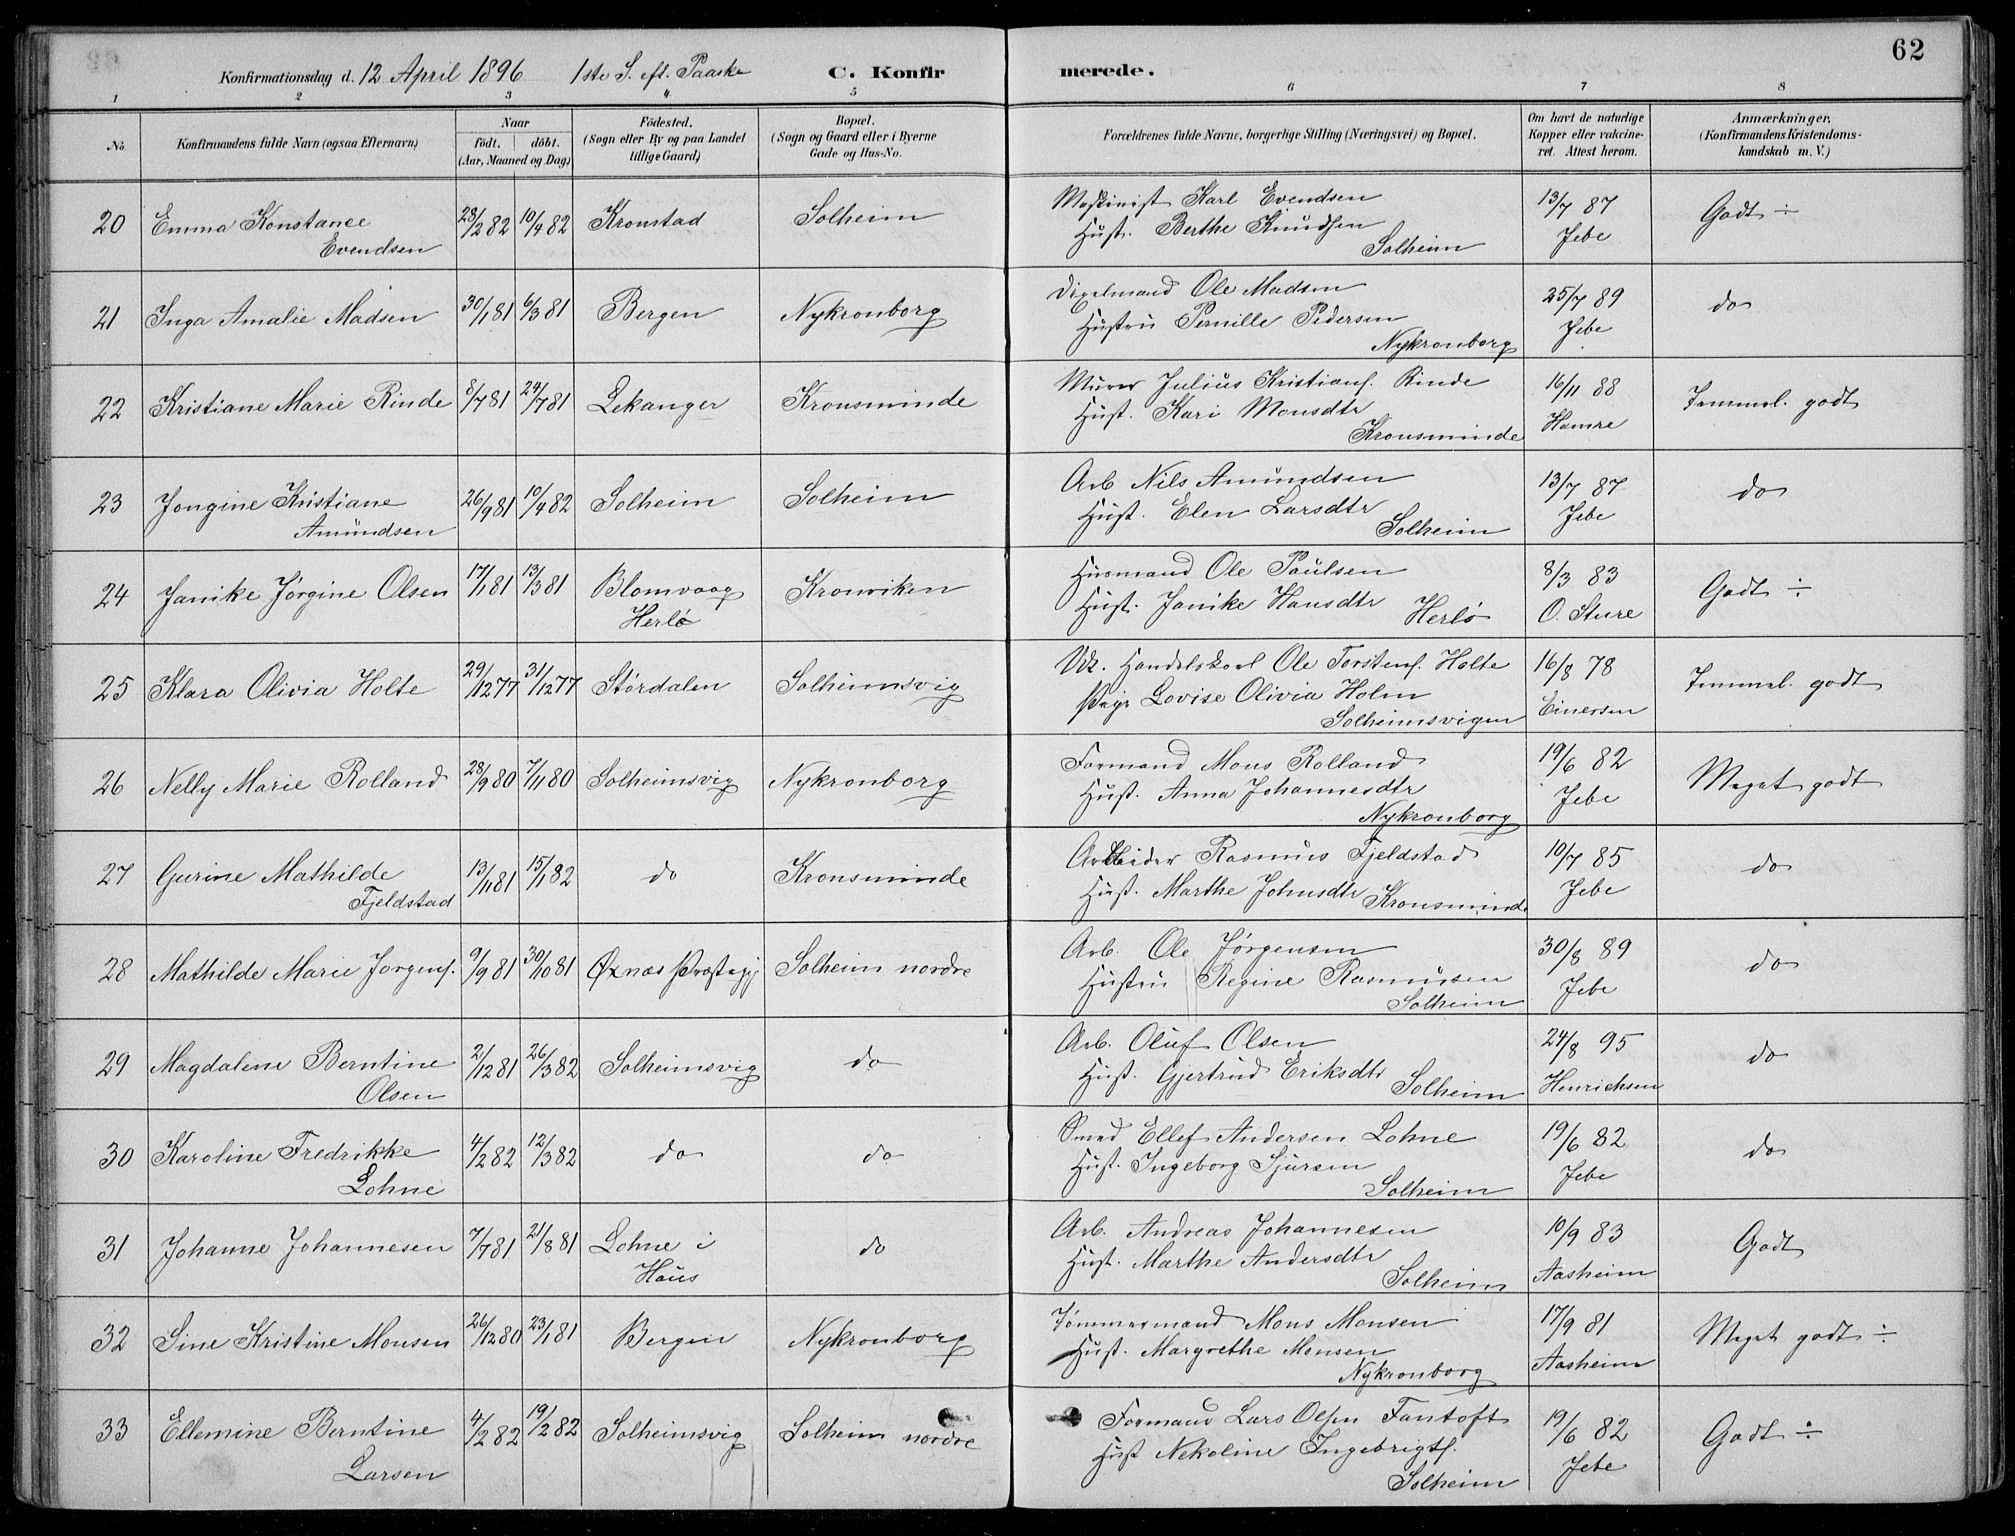 62
Konfirmationsdag d. 12 April 1896 1ste S. eft. Paaske C. Konfirmerede.
1 2 3 4 5 6 7 8
No Konfirmandens fulde Navn (ogsaa Efternavn) Naar födt. döbt. (Aar, Maaned og Dag) Födested. (Sogn eller By og paa Landet tillige Gaard) Bopæl. (Sogn og Gaard eller i Byerne Gade og Hus-No. Forældrenes fulde Navne, borgerlige Stilling (Næringsvei) og Bopæl. Om havt de naturlige Kopper eller vakcineret. Attest herom. Anmærkninger. (Konfirmandens Kristendomskundskab m. V.)
20 Emma Konstance Evendsen 28/2 82 10/4 82 Kronstad Solheim Maskinist Karl Evendsen
Hust. Berthe Knudsen Solheim 13/7 87 Jebe Godt ÷
21 Inga Amalie Madsen 30/1 81 6/3 81 Bergen Nykronborg Ole Madsen
Hustru Pernille Pedersen Nykronborg 25/7 89 Jebe do
22 Kristiane Marie Rinde 8/7 81 24/7 81 Lekanger Kronsminde Murer Julius Kristians. Rinde
Hust. Kari Monsdtr Kronsminde 16/11 88 Hamre Temmel. godt
23 Jongine Kristiane Amundsen 26/9 81 10/4 82 Solheim Solheim Arb Nils Amundsen
Hust. Elen Larsdtr Solheim 13/7 87 Jebe do
24 Janike Jørgine Olsen 17/1 81 13/3 81 Blomvaag Herlø Kronviken Husmand Ole Paulsen
Hust. Janike Hansdtr Herlø 8/3 83 O. Sture Godt ÷
25 Klara Olivia Holte 29/12 77 31/12 77 Størdalen Solheimsvig Handelskarl Ole Torstens. Holte
Pige Lovise Olivia Holm Solheimsvigen 16/8 78 Einersen Temmel. godt
26 Nelly Marie Rolland 28/9 80 7/11 80 Solheimsvig Nykronborg Formand Mons Rolland
Hust. Anna Johannesdtr Nykronborg 19/6 82 Jebe Meget godt
27 Gurine Mathilde Fjeldstad 13/11 81 15/1 82 do Kronsminde Arbeider Rasmus Fjeldstad
Hust. Marthe Johnsdtr Kronsminde 10/7 85 Jebe do
28 Mathilde Marie Jørgens. 9/9 81 30/10 81 Øxnæs Præstegj Solheim nordre Arb. Ole Jørgensen
Hustru Regine Rasmusen Solheim 30/8 89 Jebe do
29 Magdalene Berntine Olsen 2/12 81 26/3 82 Solheimsvig do Arb. Oluf Olsen
Hust. Gjertrud Eriksdtr Solheim 24/8 95 Henrichsen do
30 Karoline Fredrikke Lohne 4/2 82 12/3 82 do do Smed Ellef Andersen Lohne
Hust. Ingeborg Sjursen Solheim 19/6 82 Jebe do
31 Johanne Johannesen 7/7 81 21/8 81 Lohne i Haus do Arb. Andreas Johannesen
Hust. Marthe Andersdtr Solheim 10/9 83 Aasheim Godt
32 Sine Kristine Monsen 26/12 80 23/1 81 Bergen Nykronborg Tømmermand Mons Monsen
Hust. Margrethe Monsen Nykronborg 17/9 81 Aasheim Meget godt ÷
33 Ellemine Berntine Larsen 4/2 82 19/2 82 Solheimsvig Solheim nordre Formand Lars Olsen Fantoft
Hust Nekoline Ingebrigts. Solheim 19/6 82 Jebe Godt ÷